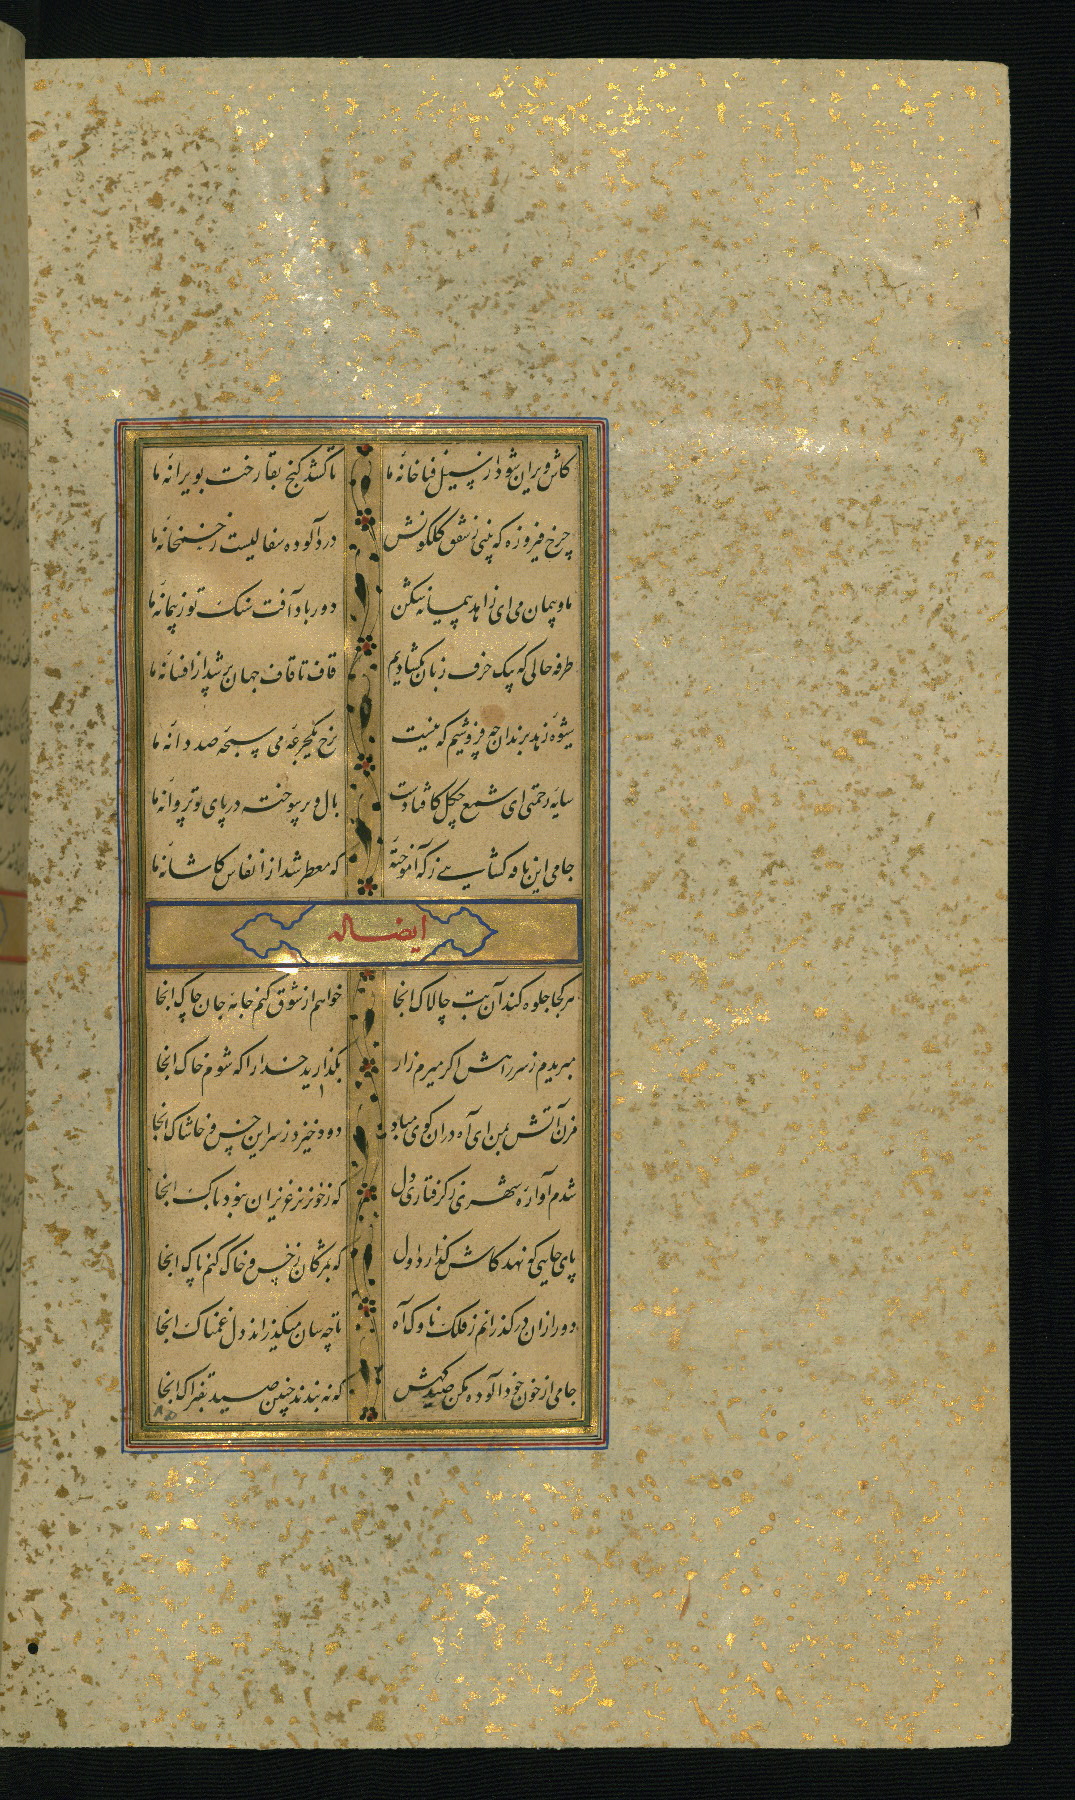 کاش ویران شود از سیل فنا خانه ما تا کشد گنج بقا رخت بویرانه ما
چرخ فیروزه که بینی ز شفق گلگونش درد آلوده سفالیست ز خمخانه ما
ما و پیمان می ای زاهد پیمانه شکن دور باد آفت سنک تو ز پیمانه ما
طرفه حالی که بیک حرف زبان نکشادیم قاف تا قاف جهان پر شد از افسانه ما
شیوه زهد برندان چه فروشیم که نیست نرخ یکجرعه می سبحه صد دانه ما
سایه رحمتی ای شمع چکل کافتادست بال و پر سوخته در پای تو پروانه ما
جامی این نافه کشایی ز که آموخته که معطر شد از انفاس تو کاشانه ما
ایضا له
هر کجا جلوه کند آن بت چالاک انجا خواهم از شوق کنم جامه جان چاک انجا
مبریدم ز سر راهش اکر میرم زار بکذارید خدا را که شوم خاک انجا
مزن آتش بمن ای آه در ان کوی مباد دود خیزد ز سر این خس و خاشاک انجا
شدم آواره شهری ز کرفتاری دل که ز خونریز غریبان نبود باک انجا
پای جایی که نهد کاش کذارد اول که بمژکان ز خس و خاک کنم پاک انجا
دور ازان در کذرانم ز فلک ناوک آه تا چه سان میکذراند دل غمناک انجا
جامی از خون خود آلوده مکن صیدکهش که نه بندند چنین صید بفتراک انجا